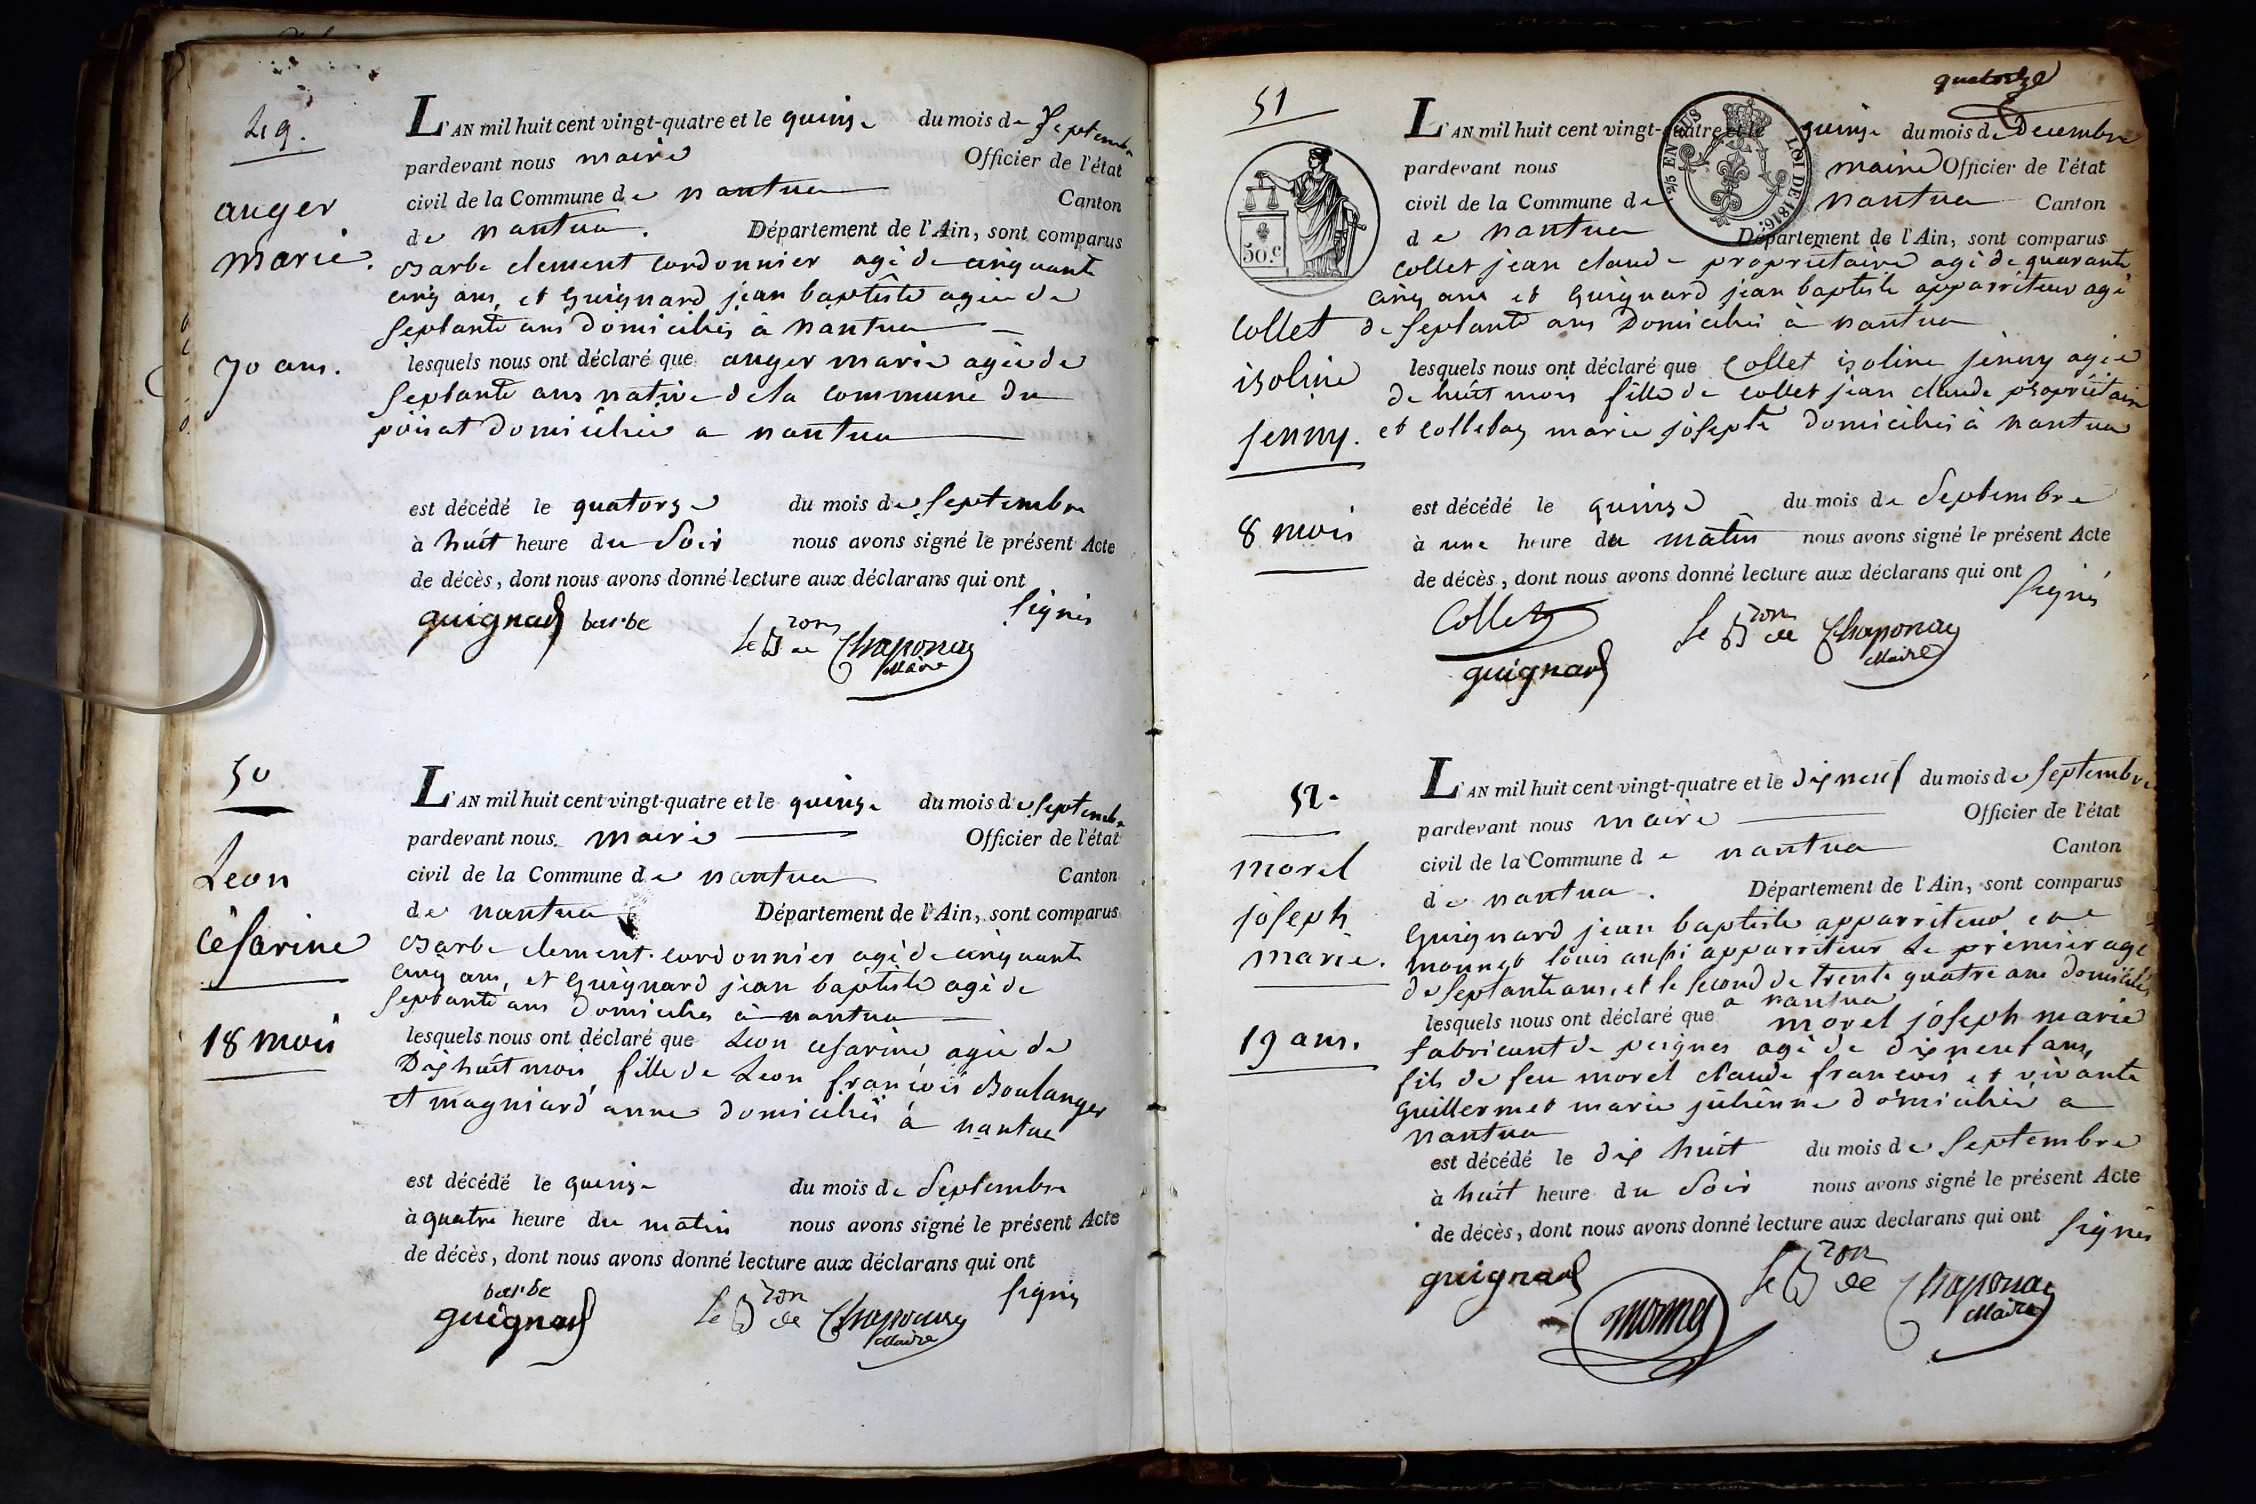 49.
auger
marie.
70 ans.
L'AN mil huit cent vingt-quatre et le quinze du mois de Septembre
pardevant nous maire Officier de l'état
civil de la Commune de nantua Canton
de nantua. Département de l'Ain, sont comparus
Barbe clement cordonnier agé de cinquante
cinq ans, et Guignard jean baptiste agée de
septante ans domiciliés à nantua
lesquels nous ont déclaré que auger marie agée de
septante ans native de la commune du
poisat domiciliée a nantua
est décédé le quatorze du mois de septembre
à huit heure du soir nous avons signé le présent Acte
de décès, dont nous avons donné lecture aux déclarans qui ont
signés
guignard barbe le Bon de Chaponay
Maire
50
Leon
césarine
18 mois
L'AN mil huit cent vingt-quatre et le quinze du mois de septembre
pardevant nous maire Officier de l'état
civil de la Commune de nantua Canton
de nantua Département de l'Ain, sont comparus
Barbe clement cordonnier agé de cinquante
cinq ans, et Guignard jean baptiste agé de
septante ans domiciliés à nantua
lesquels nous ont déclaré que Leon cesarine agée de
Dix huit mois, fille de Leon françois Boulanger
et magniard anne domiciliés à nantua
est décédé le quinze du mois de Septembre
à quatre heure du matin nous avons signé le présent Acte
de décès, dont nous avons donné lecture aux déclarans qui ont
signés
barbe
guignard le Bon de Chaponay
Maire
quatorze
51
collet
isoline
jenny.
8 mois
50.c
1/25 EN SUS LOI DE 1816.
L'AN mil huit cent vingt-quatre et le quinze du mois de Decembre
pardevant nous maire Officier de l'état
civil de la Commune de nantua Canton
de nantua Département de l'Ain, sont comparus
collet jean claude proprietaire agé de quarante
cinq ans et Guignard jean baptiste apparriteur agé
de septante ans Domiciliés à nantua
lesquels nous ont déclaré que Collet isoline jenny agée
de huit mois fille de collet jean claude propriétaire
et marie josepte domiciliés à nantua
est décédé le quinze du mois de Septembre
à une heure du matin nous avons signé le présent Acte
de décès, dont nous avons donné lecture aux déclarans qui ont
signés
Collet le Bon de Chaponay
Maire
guignard
52.
morel
joseph
marie.
19 ans.
L'AN mil huit cent vingt-quatre et le dix neuf du mois de septembre
pardevant nous maire Officier de l'état
civil de la Commune de nantua Canton
de nantua. Département de l'Ain, sont comparus
Guignard jean baptiste apparriteur et
monnet louis aussi apparriteur Le premier agé
de septante ans, et le second de trente quatre ans domiciliés
a nantua
lesquels nous ont déclaré que morel joseph marie
fabricant de peignes agé de dix neuf ans,
fils de feu morel claude francois et vivante
Guillermet marie julienne domiciliée a
nantua
est décédé le dix huit du mois de septembre
à huit heure du soir nous avons signé le présent Acte
de décès, dont nous avons donné lecture aux declarans qui ont
signés
guignard le Bon de Chaponay
Maire
monnet